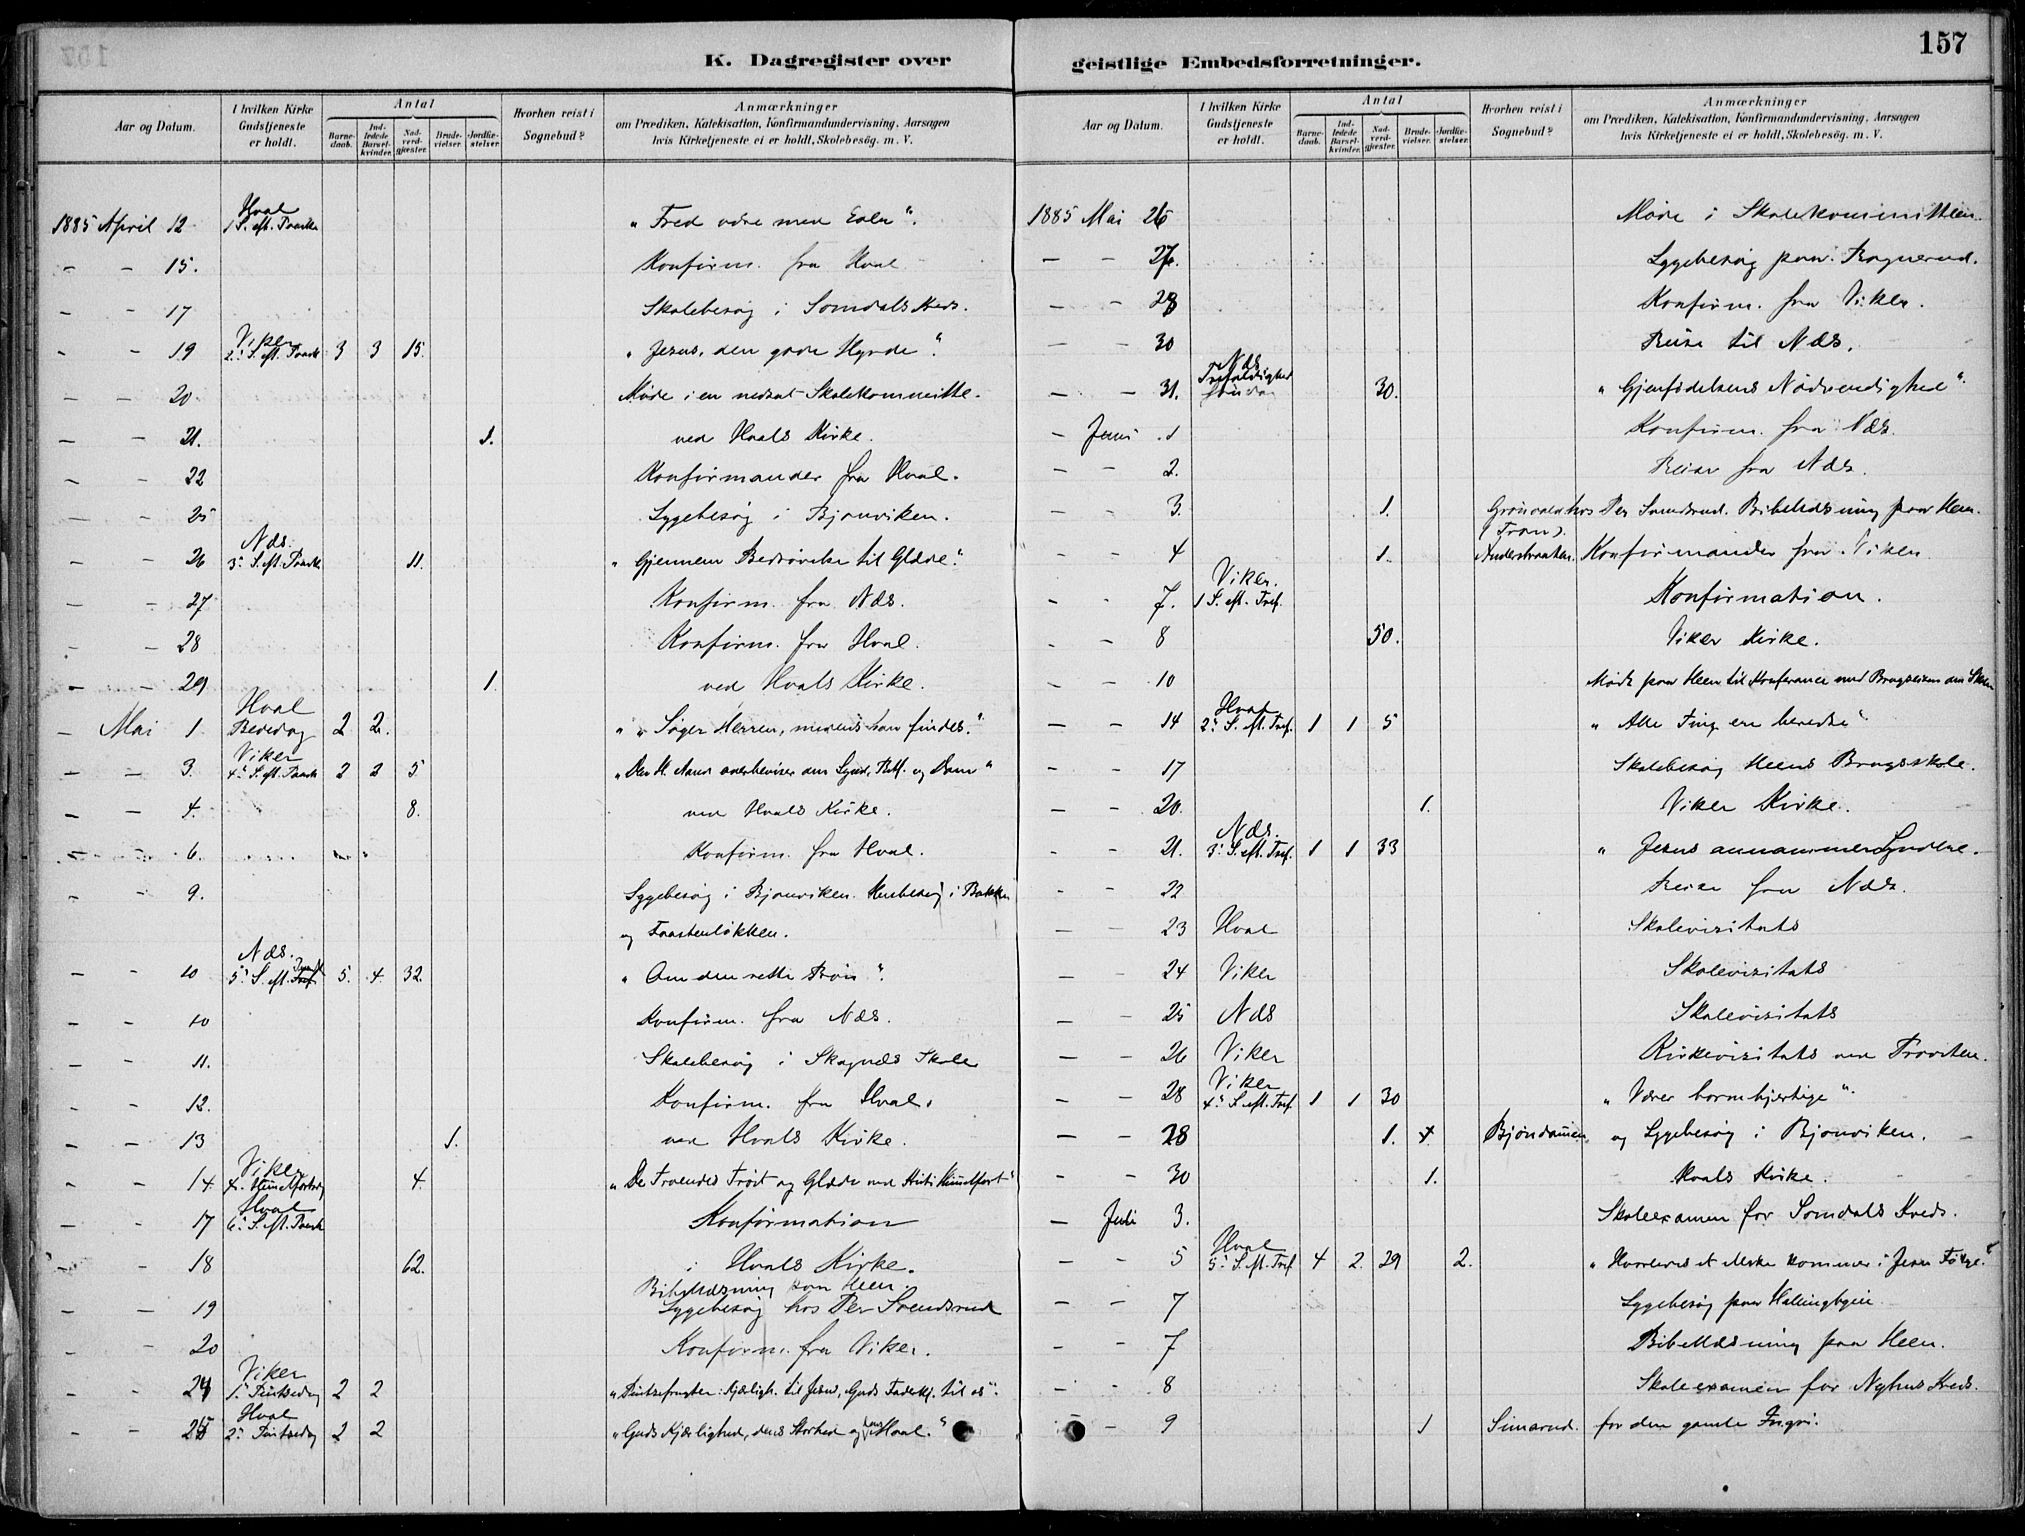 157
K. Dagregister over
geistlige Embedsforretninger.
Aar og Datum.
I hvilken Kirke Gudstjeneste er holdt.
Antal
Barnedaab.
Indledede Barselkvinder.
Nadverdgjæster.
Brudevielser.
Jordfæstelser.
Hvorhen reist i Sognebud?
Anmærkninger
om Prædiken, Katekisation, Konfirmandundervisning, Aarsagen
hvis Kirketjeneste ei er holdt, Skolebesøg. m. V.
1885 April 12 Hval 1 S. eft. Paaske "Fred være med Eder".
— — 15. Konfirm. fra Hval
— — 17 Skolebesøg i Somdals Kreds.
— — 19 Viker 2. S. eft. Paaske 3 3 15. "Jesus, den gode Hyrde".
— — 20. Møde i en nedsat Skolekommitte.
— — 21. 1. ved Hvals Kirke.
— — 22 Konfirmander fra Hval.
— — 25 Sygebesøg i Bjonviken.
— — 26 Næs. 3. S. eft. Paaske 11. "Gjennem Bedrøvelse til Glæde."
— — 27 Konfirm. fra Næs.
— — 28 Konfirm. fra Hval.
— — 29 1 ved Hvals Kirke.
— Mai 1 Hval Bededag 2 2. "Søger Herren, medens han findes."
— — 3. Viker 4. S. eft. Paaske 2 2 5. "Den H. Aand overbeviser om Synd, Retf. og Dom"
— — 4. 8. ved Hvals Kirke.
— — 6. Konfirm. fra Hval.
— — 9. Sygebesøg i Bjonviken. Husbesøg i Bakken
og Faastenløkken.
— — 10 Næs. 5. S. eft. Paaske 5. 4. 32. "Om den rette Bøn".
— — 10 Konfirm. fra Næs.
— — 11. Skolebesøg i Skagnæs Skole
— — 12. Konfirm. fra Hval.
— — 13 1. ved Hvals Kirke.
— — 14. Viker Himmelfartsdag 4. "De Troendes Trøst og Glæde ved Kristi Himmelfart"
— — 17 Hval 6. S. eft. Paaske Konfirmation
— — 18 62. i Hvals Kirke.
Bibellæsning paa Heen.
— — 19 Sygebesøg hos Per Svendsrud
— — 20 Konfirm. fra Viker.
— — 24 Viker 1. Pintsedag 2 2 "Pintsefrugter: Kjærligh. til Jesus, Guds Faderkj. til os".
— — 25 Hval 2. Pintsedag 2 2 "Guds Kjærlighed, dens Storhed og dens Maal."
Aar og Datum.
I hvilken Kirke Gudstjeneste er holdt.
Antal
Barnedaab.
Indledede Barselkvinder.
Nadverdgjæster.
Brudevielser.
Jordfæstelser.
Hvorhen reist i Sognebud?
Anmærkninger
om Prædiken, Katekisation, Konfirmandundervisning, Aarsagen
hvis Kirketjeneste ei er holdt, Skolebesøg. m. V.
1885 Mai 26 Møde i Skolekommitteen.
— — 27. Sygebesøg paa Bagnerud.
— — 28 Konfirm. fra Viker.
— — 30 Reise til Næs.
— — 31. Næs Trefoldighed søndag 30. "Gjenfødelsens Nødvendighed".
— Juni 1 Konfirm. fra Næs.
— — 2. Reise fra Næs.
— — 3. 1. hos Per Svendsrud. Bibellæsning paa Heen.
— — 4 1. Konfirmander fra Viker
— — 7. Viker. 1 S. eft. Tref. Konfirmation.
— — 8 50. Viker Kirke.
— — 10 Møde paa Heen til Konferance med Brugseieren om Skolen
— — 14 Hval 2. S. eft. Tref. 1 1 5 "Alle Ting ere beredte"
— — 17 Skolebesøg Heens Brugsskole.
— — 20. 1. Viker Kirke.
— — 21. Næs. 3. S. eft. Tref. 1 1 33 "Jesus annammer Syndere.
— — 22 Reise fra Næs.
— — 23 Hval Skolevisitats
— — 24 Viker Skolevisitats
— — 25 Næs Skolevisitats
— — 26 Viker Kirkevisitats ved Provsten.
— — 28 Viker 4. S. eft. Tref. 1 1 30 "Værer barmhjertige".
— — 28 1. Bjøndalen og Sygebesøg i Bjonviken.
— — 30 1. Hvals Kirke.
— Juli 3. Skoleexamen for Somdals Kreds.
— — 5 Hval 5. S. eft. Tref. 4 2. 29 2. "Hvorledes et Mske kommer i Jesu Følge."
— — 7 Sygebesøg paa Hallingbyeie
— — 7 Bibellæsning paa Heen.
— — 8 Skoleexamen for Nyhus Kreds.
— — 9 1 Simarud. for den gamle